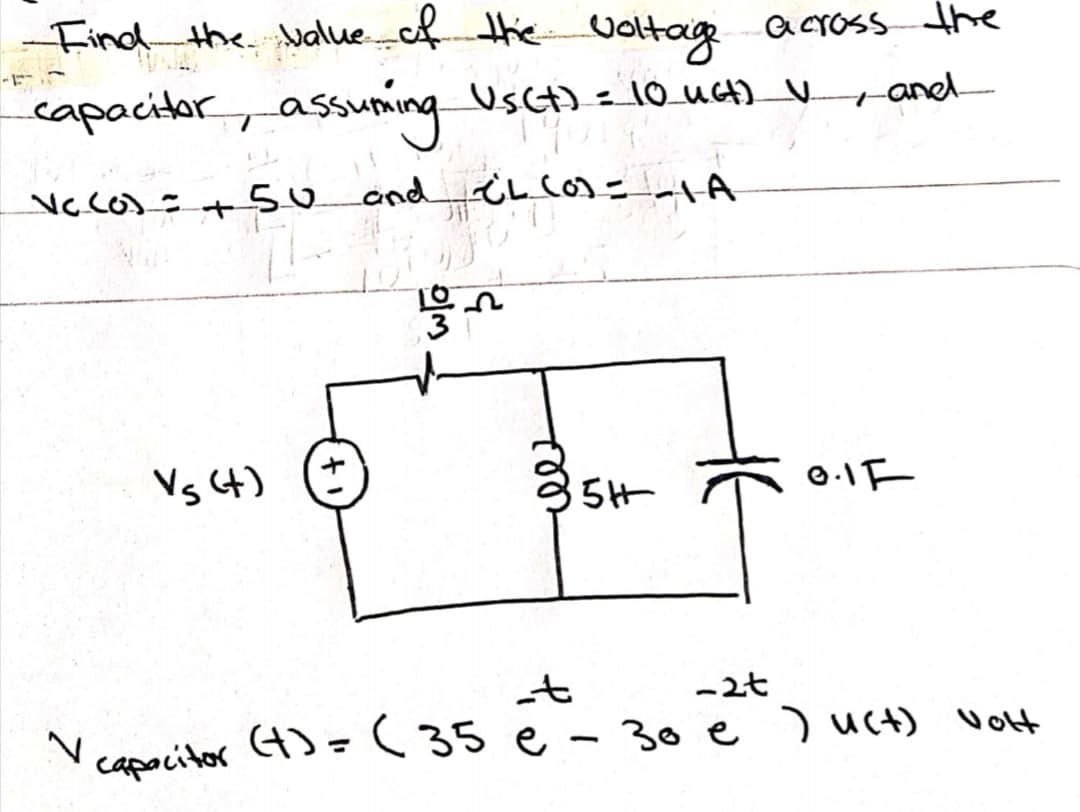 Find the value of the voltage across the
capacitor, assuming Vs(t) = 10 u(t) V, and
Vc(0) = +5V and iL(0) = -1A
10/3 Ω
Vs(t) + - 5H 0.1F
V capacitor (t) = (35 e^-t - 30 e^-2t) u(t) Volt